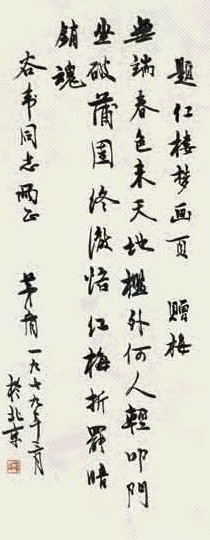 題红楼梦画页 贈梅
無端春色来天地槛外何人輕叩門
坐破蒲团终澈悟红梅折罢暗
銷魂
谷韦同志两正
茅盾一九七九年二月
於北京